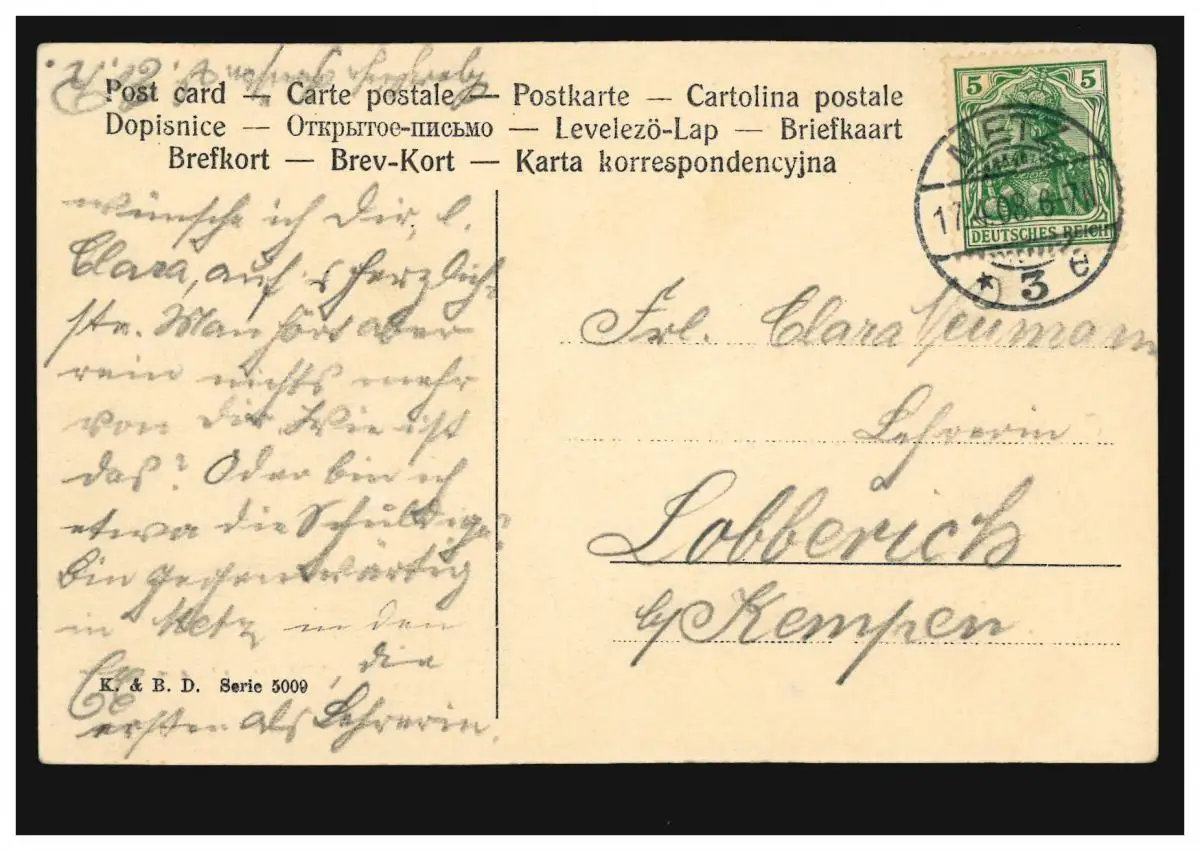 Post card — Carte postale — Postkarte — Cartolina postale
Dopisnice — Открытое-письмо — Levelezö-Lap — Briefkaart
Brefkort — Brev-Kort — Karta korrespondencyjna
5 5
DEUTSCHES REICH
METZ
17. 08. 6-7N
* 3 e
wünsche ich Dir, l.
Clara, auf's herzlich-
ste. Man hört aber
rein nichts mehr
von dir Wie ist
das? Oder bin ich
etwa die Schuldige?
Bin gegenwärtig
in Metz in den
die
ersten als Lehrerin.
K. & B. D. Serie 5009
Frl. Clara Neumann
Lehrerin
Lobberich
b/ Kempen